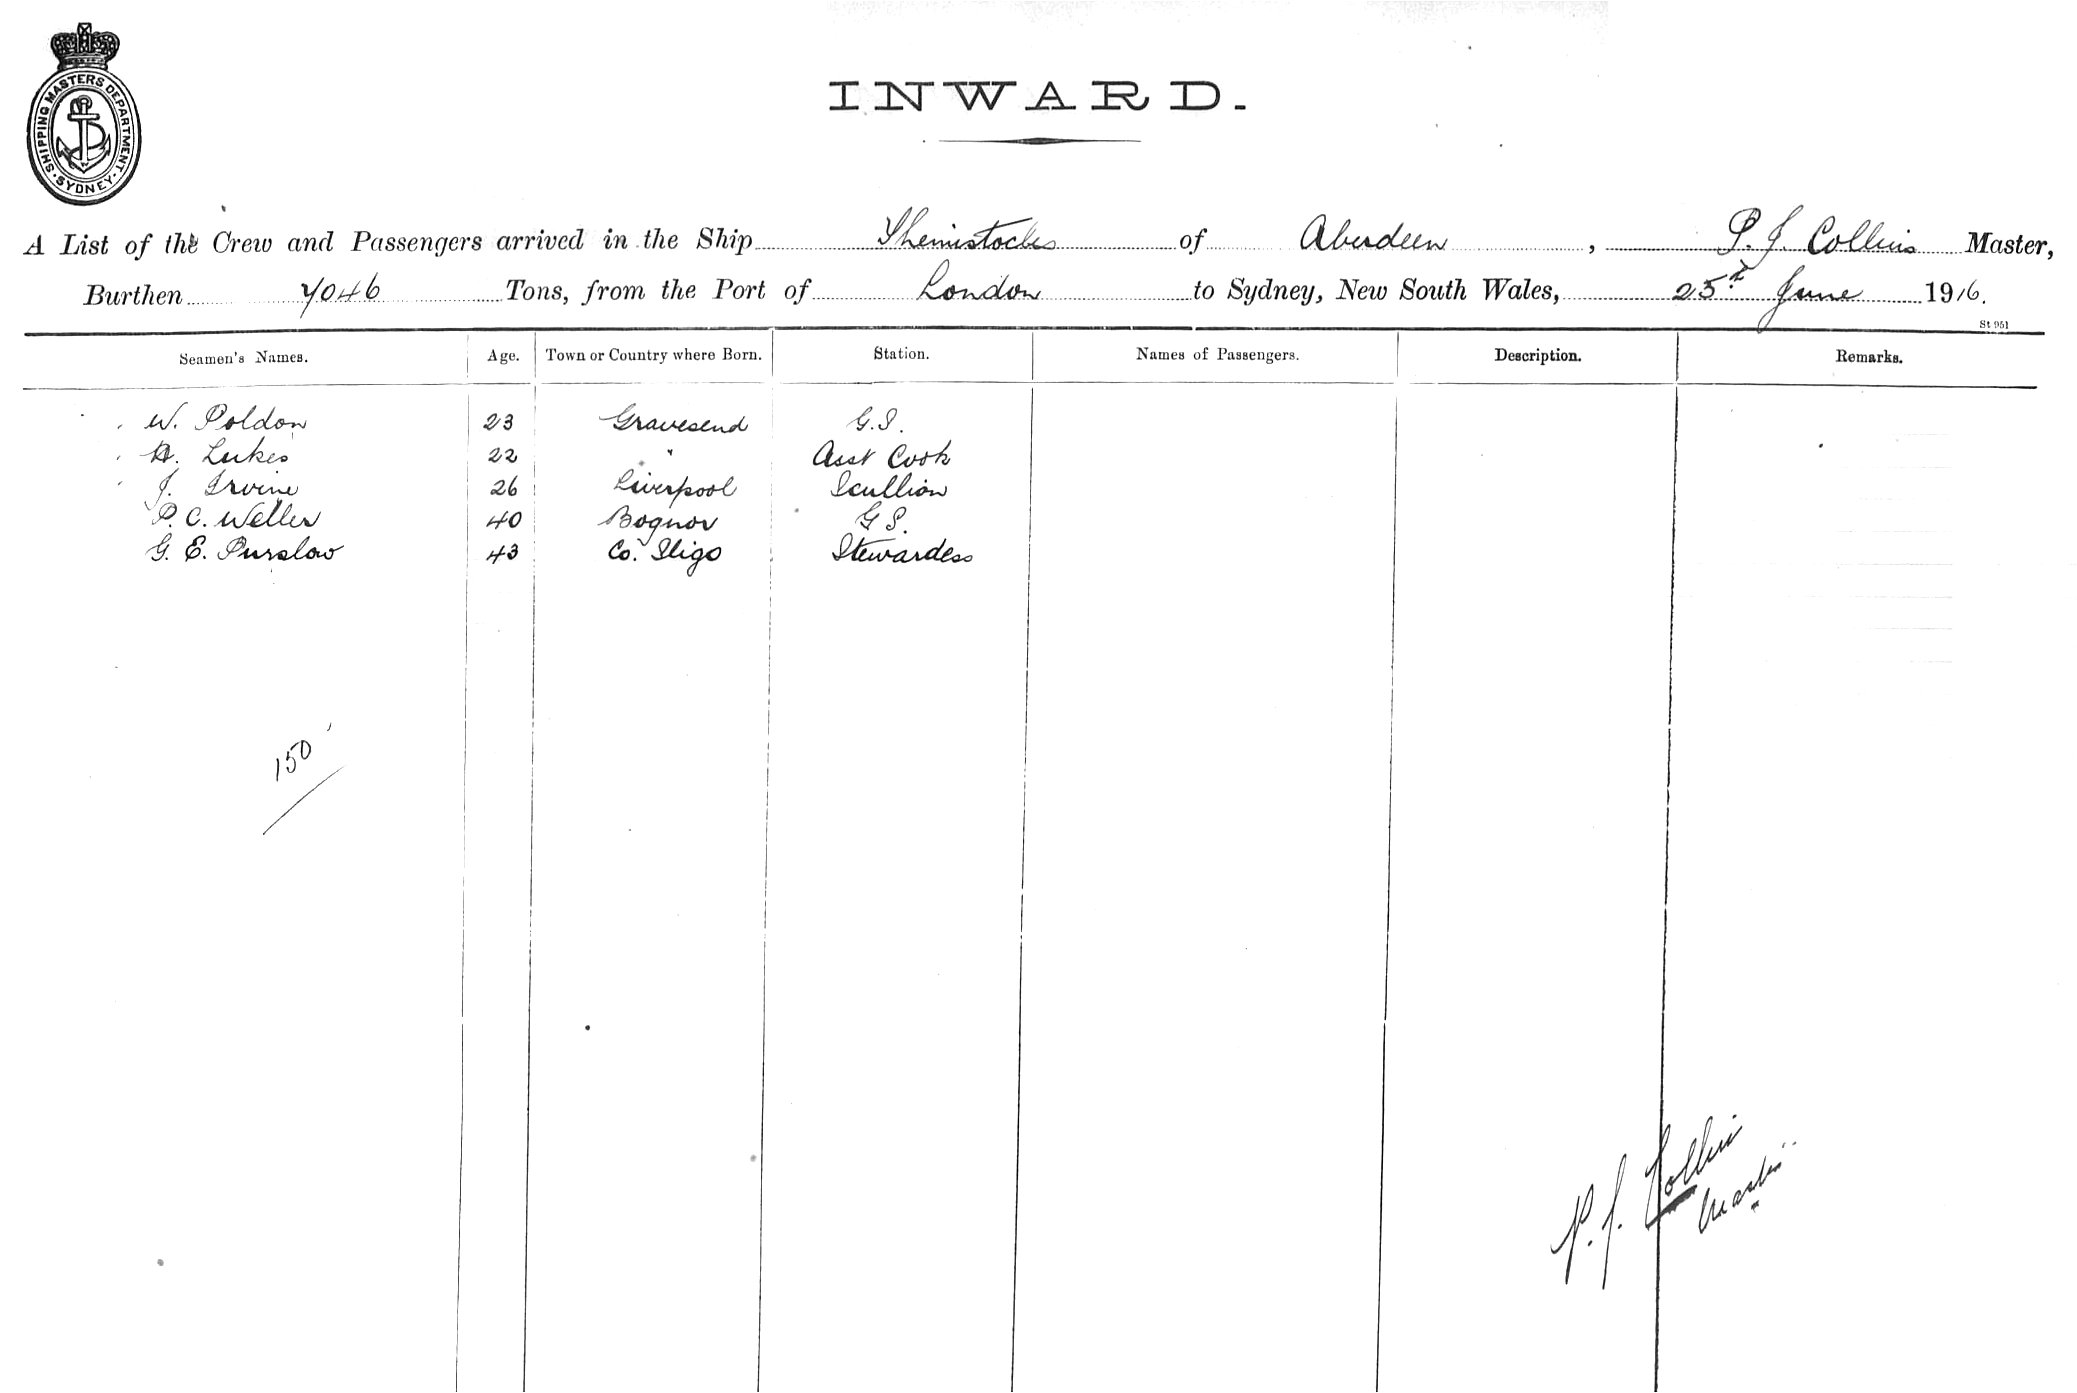 SHIPPING MASTERS DEPARTMENT · SYDNEY ·
INWARD.
A List of the Crew and Passengers arrived in the Ship Themistocles of Aberdeen, P. J. Collins Master,
Burthen 7046 Tons, from the Port of London to Sydney, New South Wales, 25th June 1916.
St 951
Seamen's Names. Age. Town or Country where Born. Station. Names of Passengers. Description. Remarks.
W. Poldon 23 Gravesend G.S.
H. Lukes 22 " Asst Cook
J. Irvine 26 Liverpool Scullion
P. C. Weller 40 Bognor G S.
G. E. Purslow 43 Co. Sligo Stewardess
150
P. J. Collins
Master